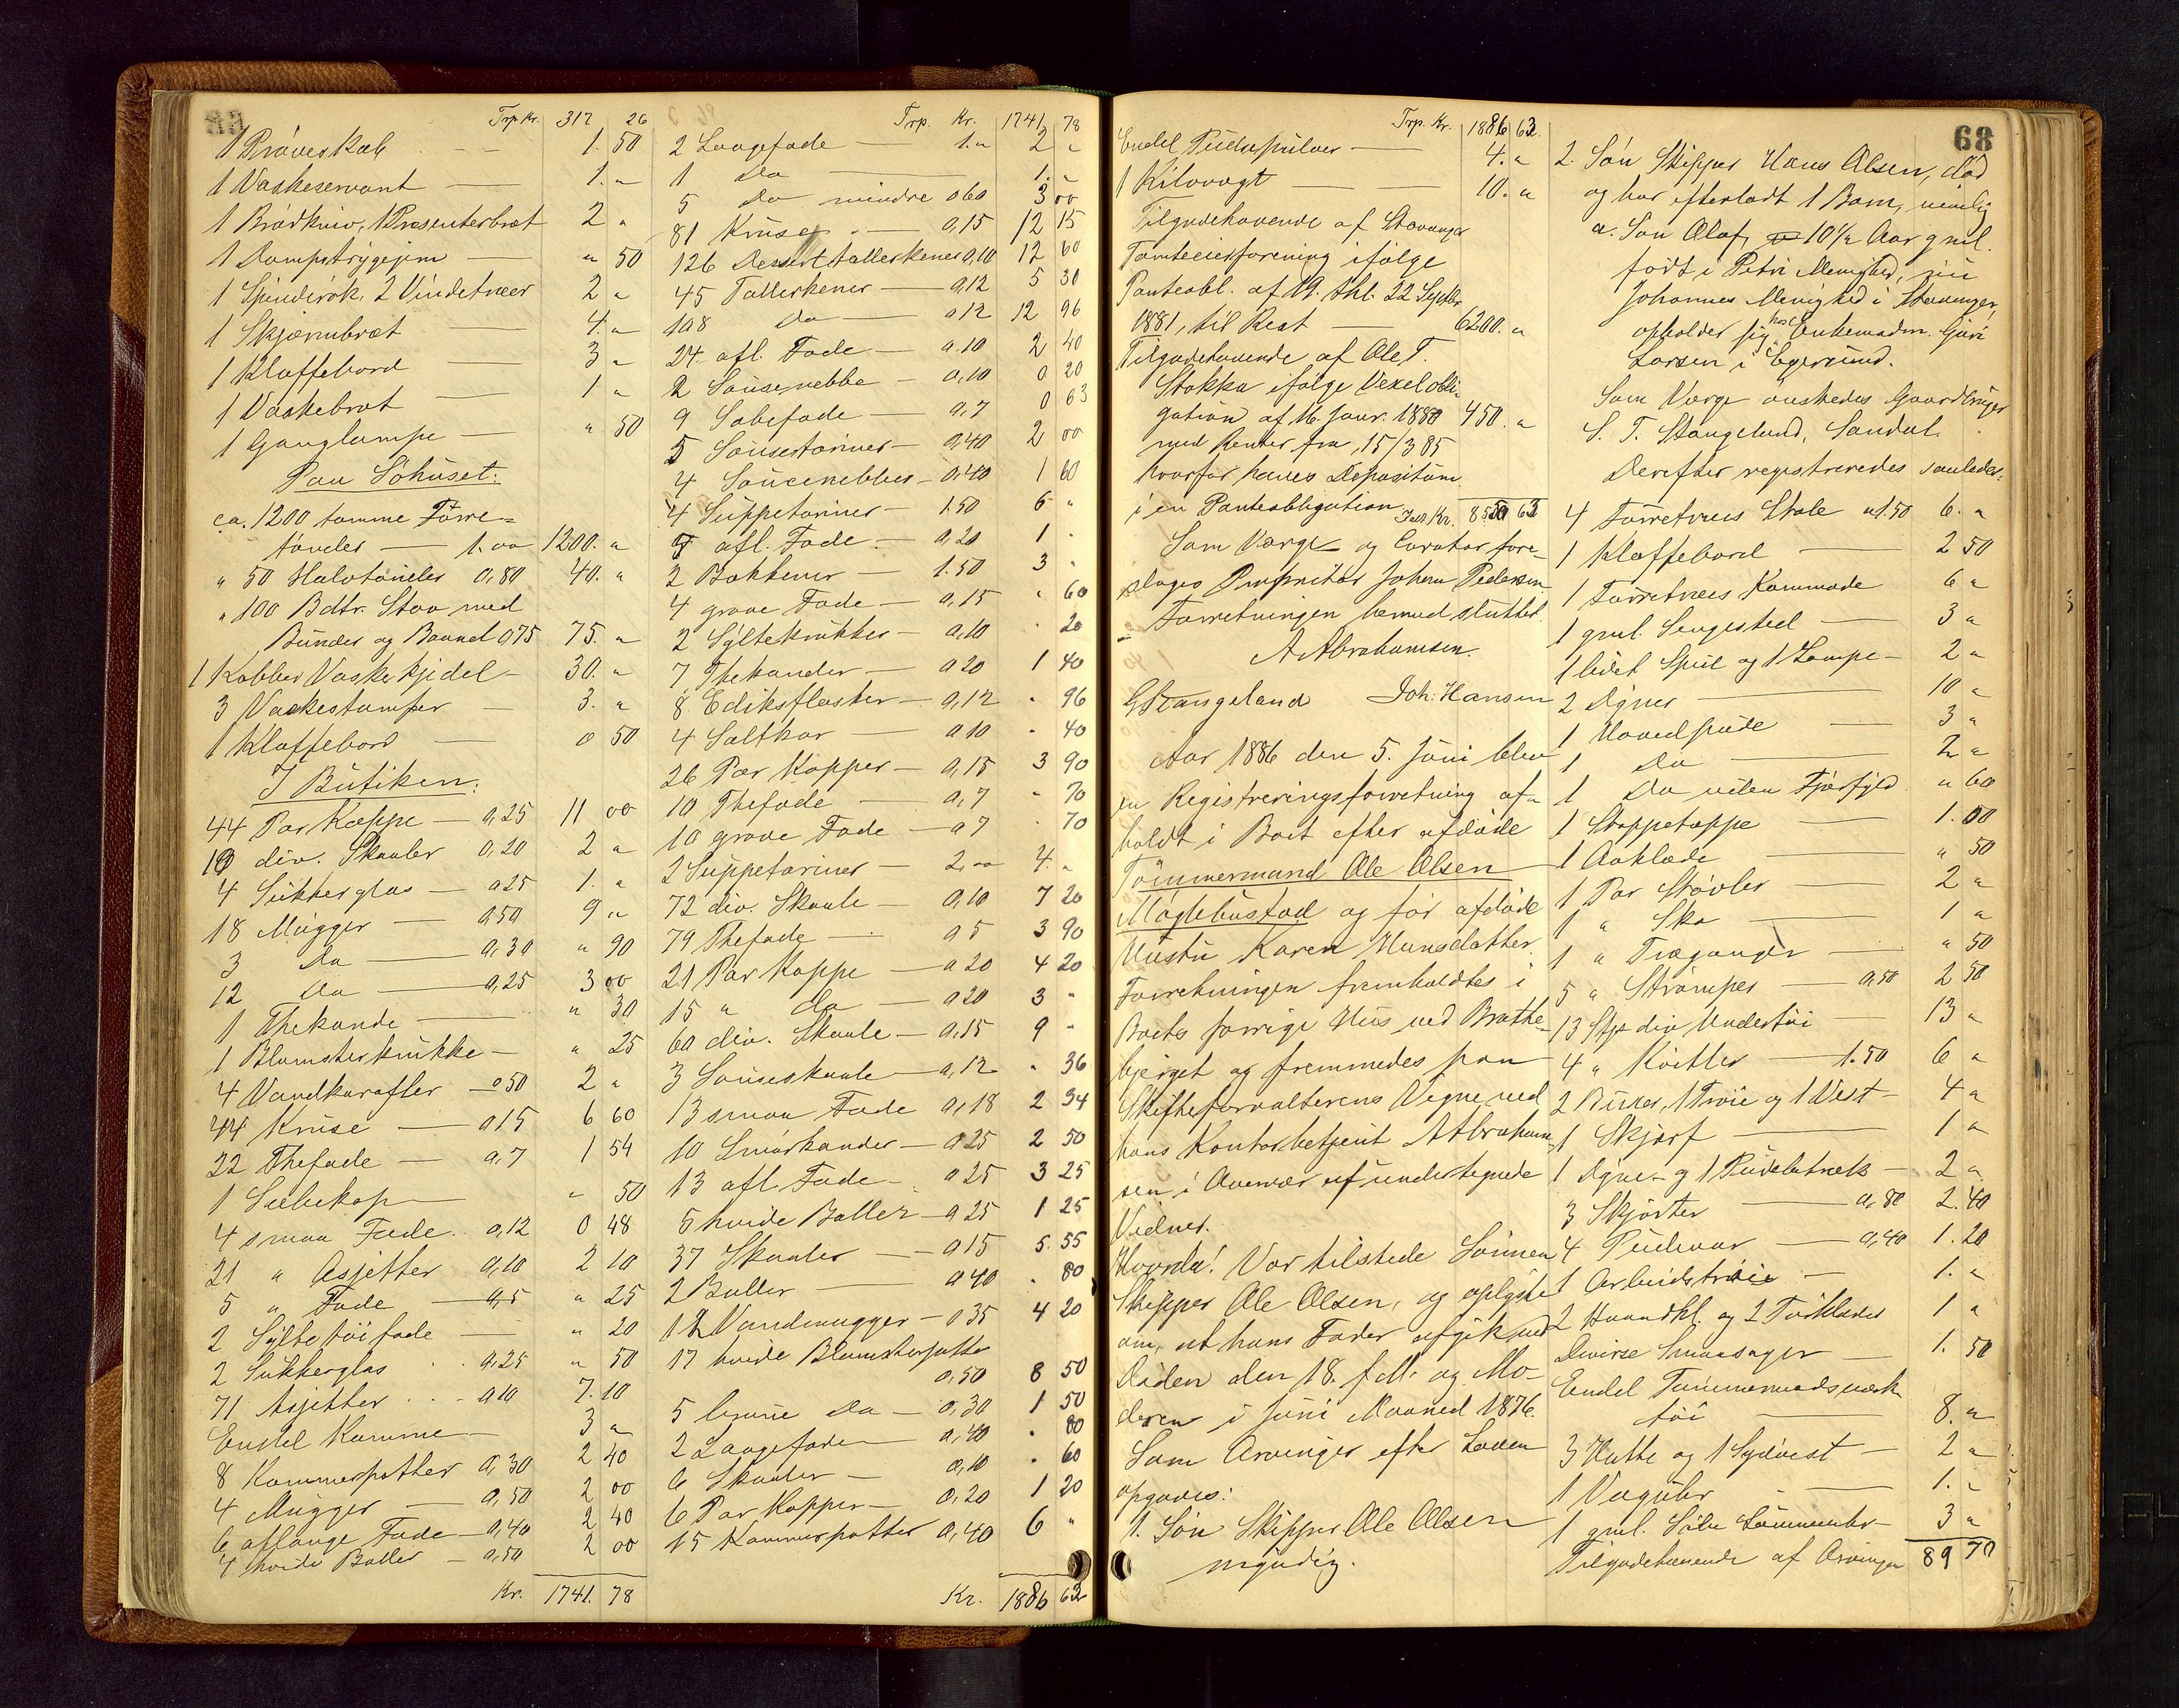 Trp Kr. 317 26
1 Prøveskab 1. 50
1 Vaskeservant — 1. "
1 Brødkniv, 1 Presenterbret 2 "
1 Dampstrygejern — " 50
1 Spinderok, 2 Vindetræer 2 "
1 Skjærmbræt — 4. "
1 Klaffebord — 3 "
1 Vaskebræt — 1 "
1 Ganglampe — " 50
Paa Söhuset:
ca. 1200 tomme Törre=
tønder — 1.00 1200. "
" 50 Halvtønder 0,80 40. "
" 100 Bdtr. Stav med
Bunder og Baand 0,75 75. "
1 Kobber Vaskekjedel — 30. "
3 Vaskestamper — 3. "
1 Klaffebord — 0 50
I Butiken:
44 Par Koppe — 0,25 11 00
10 div. Skaaler 0,20 2 "
4 Sukkerglas — 0,25 1. "
18 Mugger — 0,50 9 "
3 Do — 0,30 " 90
12 Do — 0,25 3 00
1 Thekande — " 30
1 Blomsterkrukke — " 25
4 Vandkarafler — 0 50 2 "
44 Kruse — 0 15 6 60
22 Thefade — 0,7 1 54
1 Sæbekop — " 50
4 smaa Fade 0,12 0 48
21 " Asjetter 0,10 2 10
5 " Fade — 0,5 " 25
2 Syltetøifade — " 20
2 Sukkerglas 0,25 " 50
71 Asjetter 0 10 7.10
Endel Kamme — 3 "
8 Kammerpotter 0,30 2 40
4 Mugger — 0,50 2 00
6 aflange Fade — 0,40 2 40
4 hvide Boller — 0,50 2 00
Kr. 1741. 78
Trp. Kr. 1741. 78
2 Laagefade — 1." 2 "
1 Do — 1. "
5 Do mindre 0 60 3 00
81 Kruse — 0,15 12 15
126 Desserttallerkener 0,10 12 60
45 Tallerkener — 0,12 5 30
108 Do — 0 12 12 96
24 afl. Fade — 0.10 2 40
2 Sausenebbe — 0,10 0 20
9 Sæbefade — 0,7 0 63
5 Sauseteriner — 0,40 2 00
4 Saucenebber — 0,40 1 60
4 Suppeteriner — 1.50 6 "
5 afl. Fade — 0,20 1 "
2 Bakkener — 1.50 3 "
4 grove Fade — 0,15 " 60
2 Syltekrukker — 0,10 " 20
7 Thekander — 0 20 1 40
8 Ediksflasker — 0,12 " 96
4 Saltkar — 0 10 " 40
26 Par Kopper — 0,15 3 90
10 Thefade — 0,7 " 70
10 grove Fade — 0 7 " 70
2 Suppeteriner — 2,00 4. "
72 div. Skaale — 0,10 7 20
79 Thefade — 0 5 3 90
21 Par Koppe — 0 20 4 20
15 " do — 0 20 3 "
60 div. Skaale — 0,15 9 "
3 Sauseskaale — 0,12 " 36
13 smaa Fade 0,18 2 34
10 Smørkander — 0 25 2 50
13 afl. Fade — 0 25 3 25
5 hvide Boller — 0 25 1 25
37 Skaaler — 0 15 5. 55
2 Boller — 0 40 " 80
12 Vandmugger — 0 35 4 20
17 hvide Blomsterpotter
0,50 8 50
5 brune Do — 0,30 1 50
2 Laagefade — 0,40 " 80
6 Skaaler — 0,10 " 60
6 Par Kopper — 0,20 1 20
15 Kammerpotter 0,40 6 "
Kr. 1886 63
Trp. Kr. 1886 63.
Endel Pudsepulver — 4. "
1 Kilovægt — 10. "
Tilgodehavende af Stavanger
Tomteeierforening ifølge
Panteobl. af 19. thl. 22 Septbr.
1881, til Rest — 6200. "
Tilgodehavende af Ole T.
Stokka ifølge Vexelobli-
gation af 16. Janr. 1880 450. "
med Renter fra 15/3 85
hvorfor haves Depositum
i en Panteobligation
Ialt Kr. 8550 63
Som Værge og Curator fore-
slages Proprietær Johan Pedersen.
Forretningen hermed sluttet.
A Abrahamsen.
G Stangeland Joh: Hansen
Aar 1886 den 5. Juni blev
en Registreringsforretning af-
holdt i Boet efter afdøde
Tømmermand Ole Olsen
Møglebustad og før afdøde
Hustru Karen Hansdatter.
Forretningen fremholdtes i
Boets forrige Hus ved Bratte-
bjerget og fremmedes paa
Skifteforvalterens Vegne ved
hans Kontorbetjent A Abraham-
sen i Overvær af undertegnede
Vidner.
Hvorda! Var tilstede Sønnen
Skipper Ole Olsen, og oplyste
om, at hans Fader afgik ved
Døden den 18. f. M. og Mo-
deren i Juni Maaned 1876.
Som Arvinger efter Loven
opgaves:
1. Søn Skipper Ole Olsen
myndig.
68
2. Søn Skipper Hans Olsen, død
og har efterladt 1 Barn, nemlig
a. Søn Olaf, 10½ Aar gml.
født i Petri Menighed, nu
Johannes Menighed i Stavanger,
opholder sig hos Enkemadm. Guri
Larsen i Egersund.
Som Værge ønskedes Gaardbruger
S. T. Stangeland, Sandal.
Derefter registreredes saaledes:
4 Førretræs Stole a 1.50 6. "
1 Klaffebord — 2 50
1 Førretræes Kommode 6 "
1 gml. Sengested — 3 "
1 lidet Speil og 1 Lampe — 2 "
2 Dyner — 10 "
1 Hovedpude — 3 "
1 Do — 2 "
1 Do uden Fjærfyld " 60
1 Stoppetæppe — 1. 00
1 Aaklæde — " 50
1 Par Støvler — 2 "
1 " Sko — 1 "
1 " Træganger — " 50
5 " Strømper — 0,50 2 50
13 Stk div Undertøi — 13 "
4 " Kofter — 1.50 6 "
2 Buxer, 1 Trøie og 1 Vest — 4 "
1 Skjærf — 1 "
1 Dyne- og 1 Pudebetræk — 2 "
3 Skjorter — 0,80 2. 40
4 Pudevar — 0,40 1. 20
1 Arbeidstrøie — 1. "
2 Haandkl. og 2 Tørklæder 1 "
Diverse Smaasager — 1. 50
Endel Tømmermandsværk-
tøi — 8. "
3 Hatte og 1 Sydvest — 2 "
1 Vægur — 1. "
1 gml. Sølv Lommeuhr — 3 "
Tilgodehavende af Arvinger 89 70